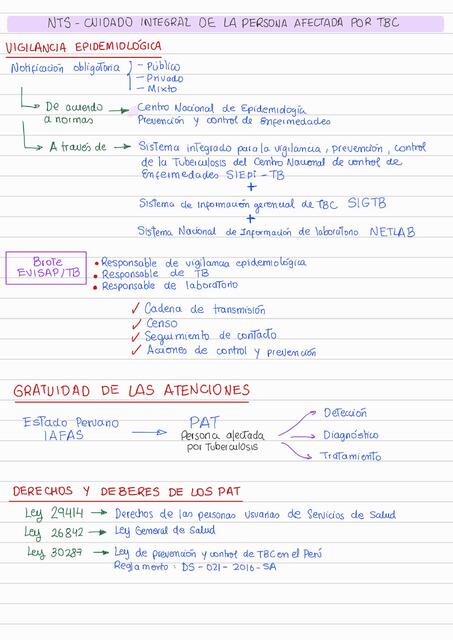 NTS - CUIDADO INTEGRAL DE LA PERSONA AFECTADA POR TBC
VIGILANCIA EPIDEMIOLÓGICA
Notificación obligatoria
- Público
- Privado
- Mixto
De acuerdo → Centro Nacional de Epidemiología
a normas Prevención y control de Enfermedades
A través de → Sistema integrado para la vigilancia, prevención, control
de la Tuberculosis del Centro Nacional de control de
Enfermedades SIEPI-TB
+
Sistema de información gerencial de TBC SIGTB
+
Sistema Nacional de Información de laboratorio NETLAB
Brote
EVISAP/TB
• Responsable de vigilancia epidemiológica
• Responsable de TB
• Responsable de laboratorio
✓ Cadena de transmisión
✓ Censo
✓ Seguimiento de contacto
✓ Acciones de control y prevención
GRATUIDAD DE LAS ATENCIONES
Estado Peruano → PAT
IAFAS Persona afectada
por Tuberculosis
Detección
Diagnóstico
Tratamiento
DERECHOS Y DEBERES DE LOS PAT
Ley 29414 → Derechos de las personas usuarias de Servicios de Salud
Ley 26842 → Ley General de Salud
Ley 30287 → Ley de prevención y control de TBC en el Perú
Reglamento: DS-021-2016-SA